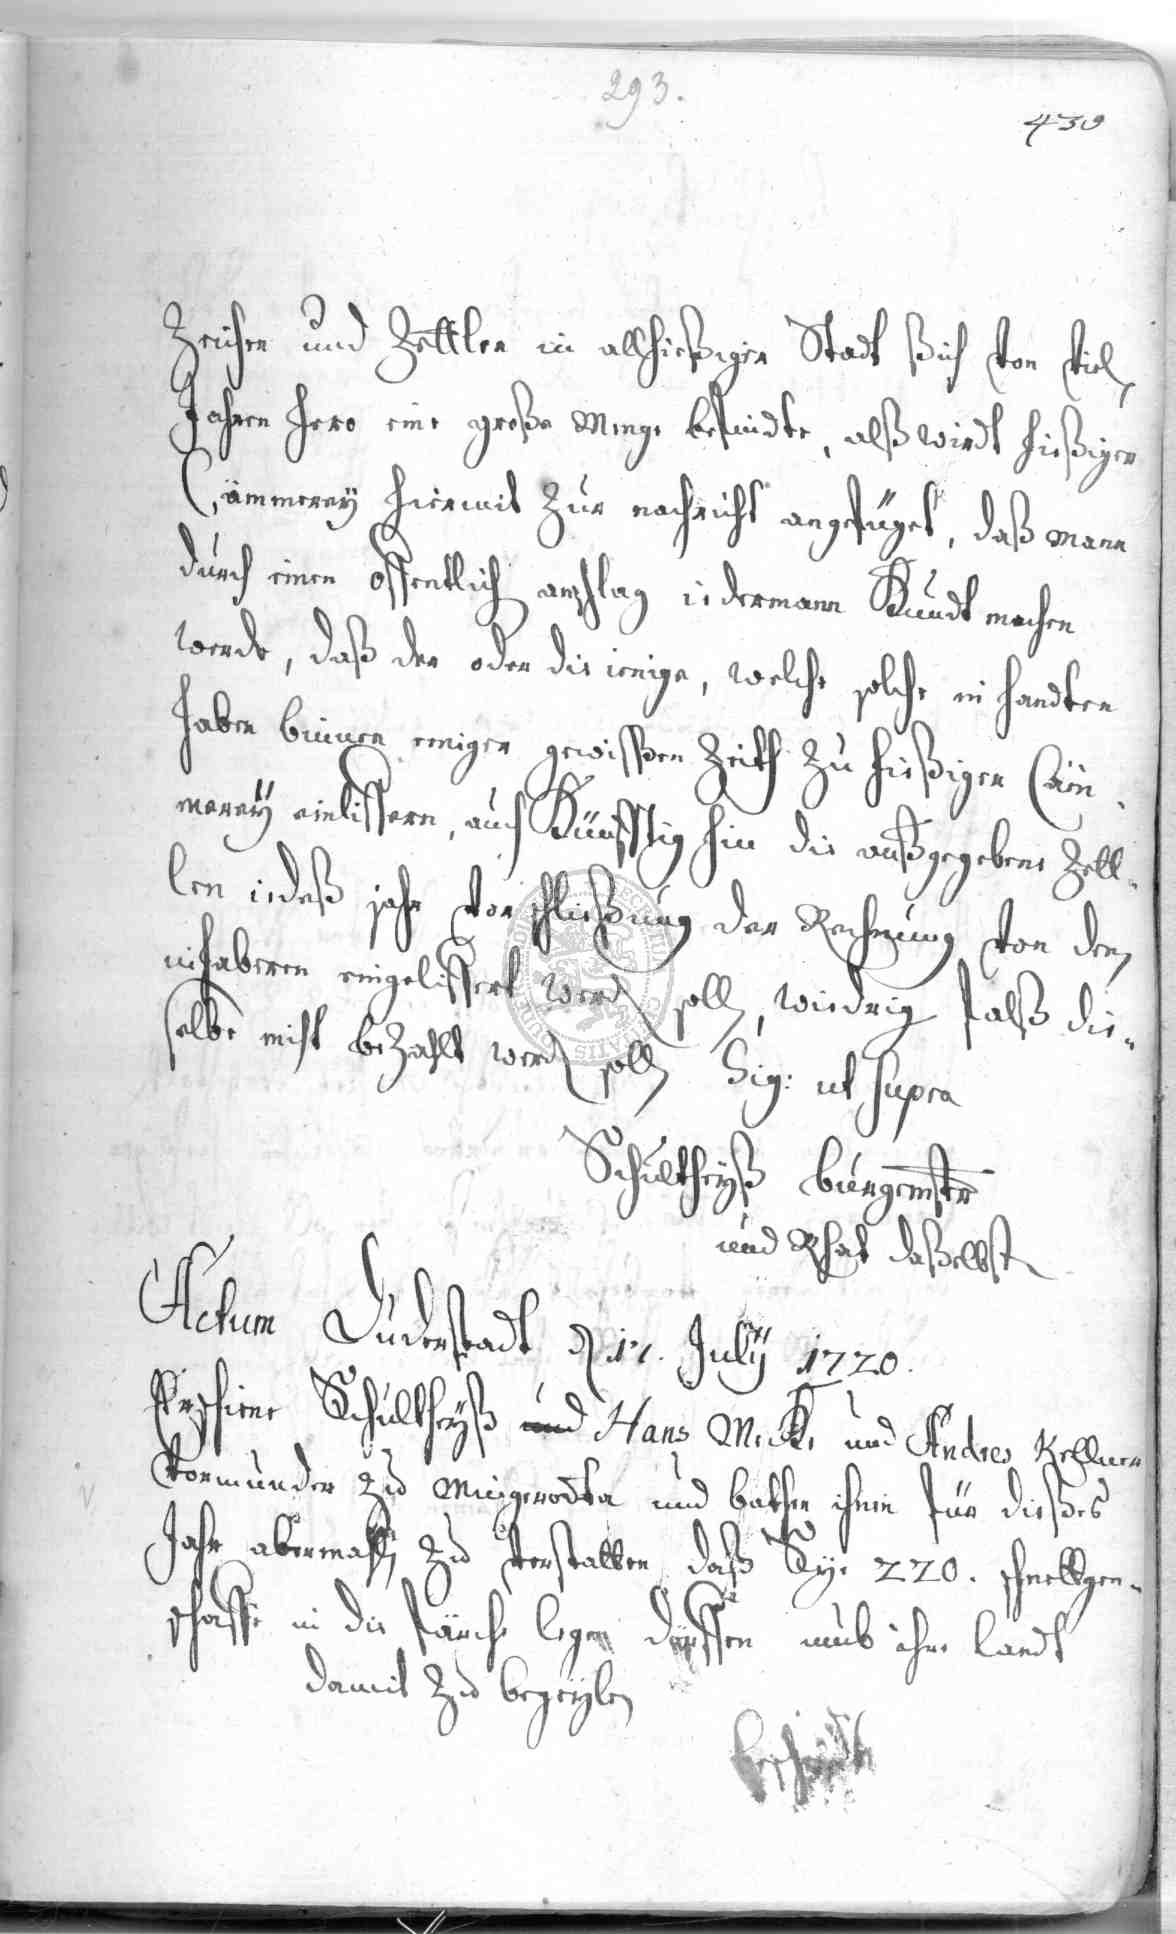 293.
439
Zeichen und Zettlen in allhießiger Stadt sich von viel
Jahren hero eine große Menge befindte, alß wirdt hießiger
Cämmerey hiermit zur nachricht angefüget, daß mann
durch einen öffentlich anschlag iedermann Kundt machen
werde, daß der oder die ienige, welche solche in handten
haben binnen einiger gewissen Zeith zu hießiger Cäm-
merey einliffern, auch Künfftig hin die außgegebene Zett-
len iedeß jahr vor schließung der Rechnung von den
inhaberen eingeliffert werd soll, wiedrig falß die-
selbe nicht bezahlt werd soll Sig: ut supra
Schultheyß burgemstr
und Rhat daßelbst
Actum Duderstadt d 17. July 1720.
Erschiene Schultheyß und Hans Mecke und Andres Kellner
Vormunder zu Mingeroda und bathen ihnen für dießes
Jahr abermahl zu verstatten daß Sye 220. schnittgen-
schaffe in die färche legen dörffen umb ihre landt
damit zu begeylen